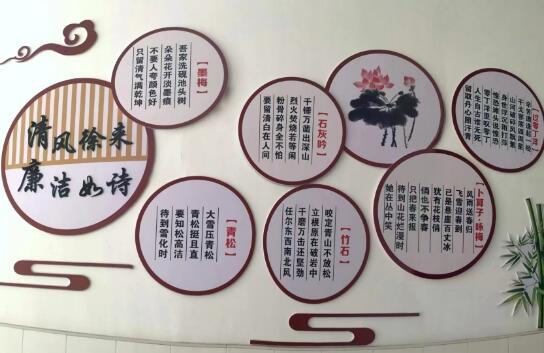 清风徐来
廉洁如诗
【墨梅】
吾家洗砚池头树
朵朵花开淡墨痕
不要人夸颜色好
只留清气满乾坤
【石灰吟】
千锤万凿出深山
烈火焚烧若等闲
粉骨碎身全不怕
要留清白在人间
【过零丁洋】
辛苦遭逢起一经
干戈寥落四周星
山河破碎风飘絮
身世浮沉雨打萍
惶恐滩头说惶恐
零丁洋里叹零丁
人生自古谁无死
留取丹心照汗青
【青松】
大雪压青松
青松挺且直
要知松高洁
待到雪化时
【竹石】
咬定青山不放松
立根原在破岩中
千磨万击还坚劲
任尔东西南北风
【卜算子·咏梅】
风雨送春归
飞雪迎春到
已是悬崖百丈冰
犹有花枝俏
俏也不争春
只把春来报
待到山花烂漫时
她在丛中笑